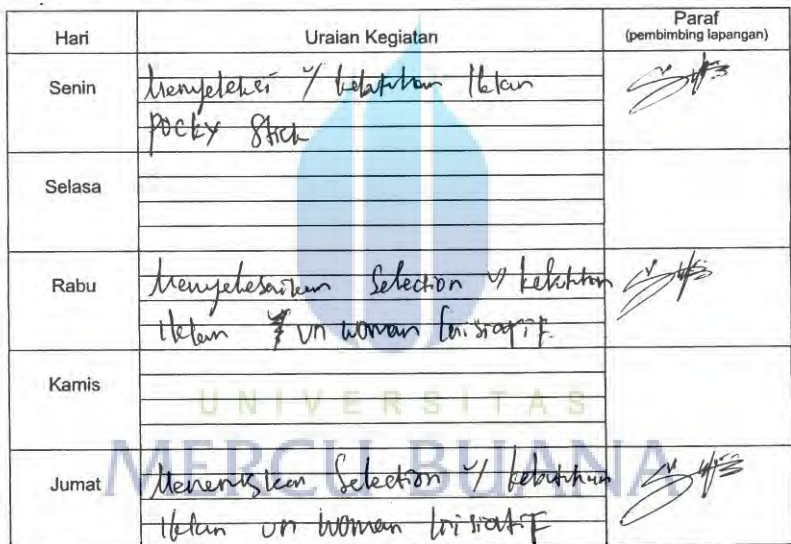 Hari Uraian Kegiatan Paraf
(pembimbing lapangan)
Senin Menyeleksi u/ kebutuhan Iklan
Pocky Stick
Selasa
Rabu Menyelesaikan Selection u/ kebutuhan
Iklan UN Woman Inisiatif.
Kamis
UNIVERSITAS
MERCU BUANA
Jumat Meneruskan Selection u/ kebutuhan
Iklan UN Woman Inisiatif